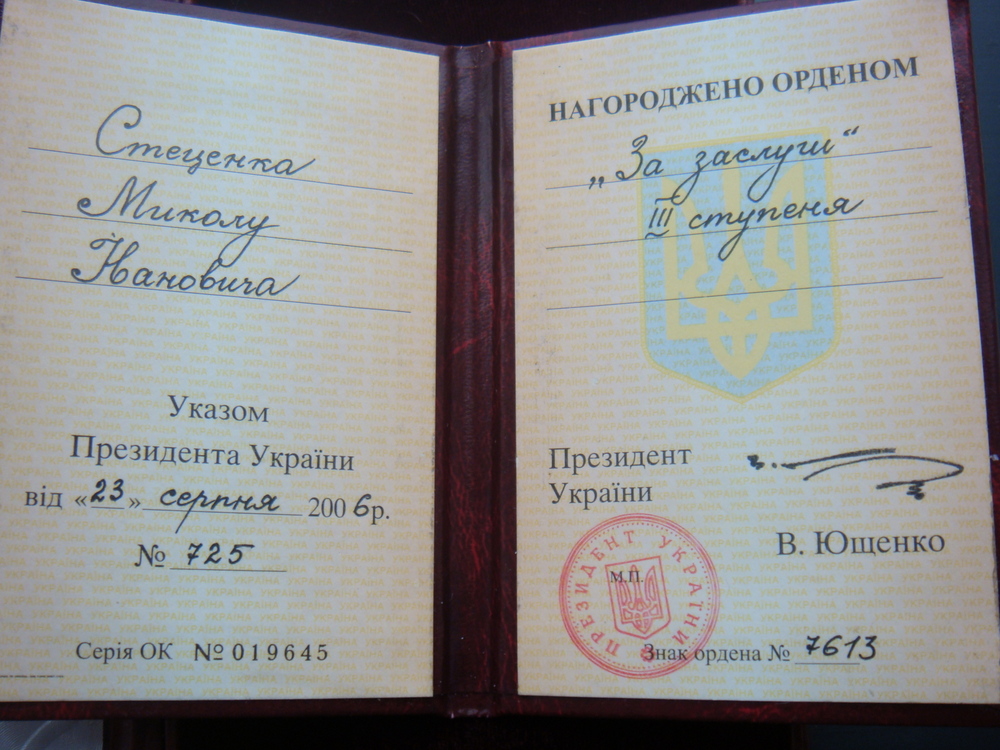 Стеценка
Миколу
Івановича
Указом
Президента України
від «23» серпня 2006р.
№ 725
Серія ОК № 019645
НАГОРОДЖЕНО ОРДЕНОМ
„За заслуги“
III ступеня
Президент
України
В. Ющенко
ПРЕЗИДЕНТ УКРАЇНИ
М.П.
Знак ордена № 7613